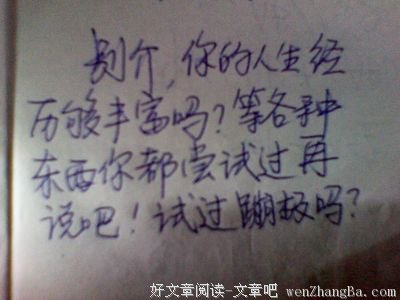 别介,你的人生经
历够丰富吗?等各种
东西你都尝试过再
说吧!试过蹦极吗?
好文章阅读-文章吧 wenZhangBa.com